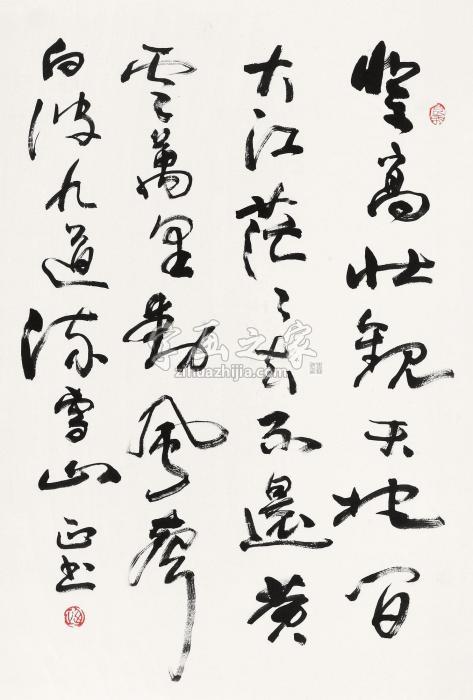 登高壮觀天地间
大江茫〻去不還黄
雲萬里動風聲
白波九道流雪山 正书
字画之家
zihuazhijia.com